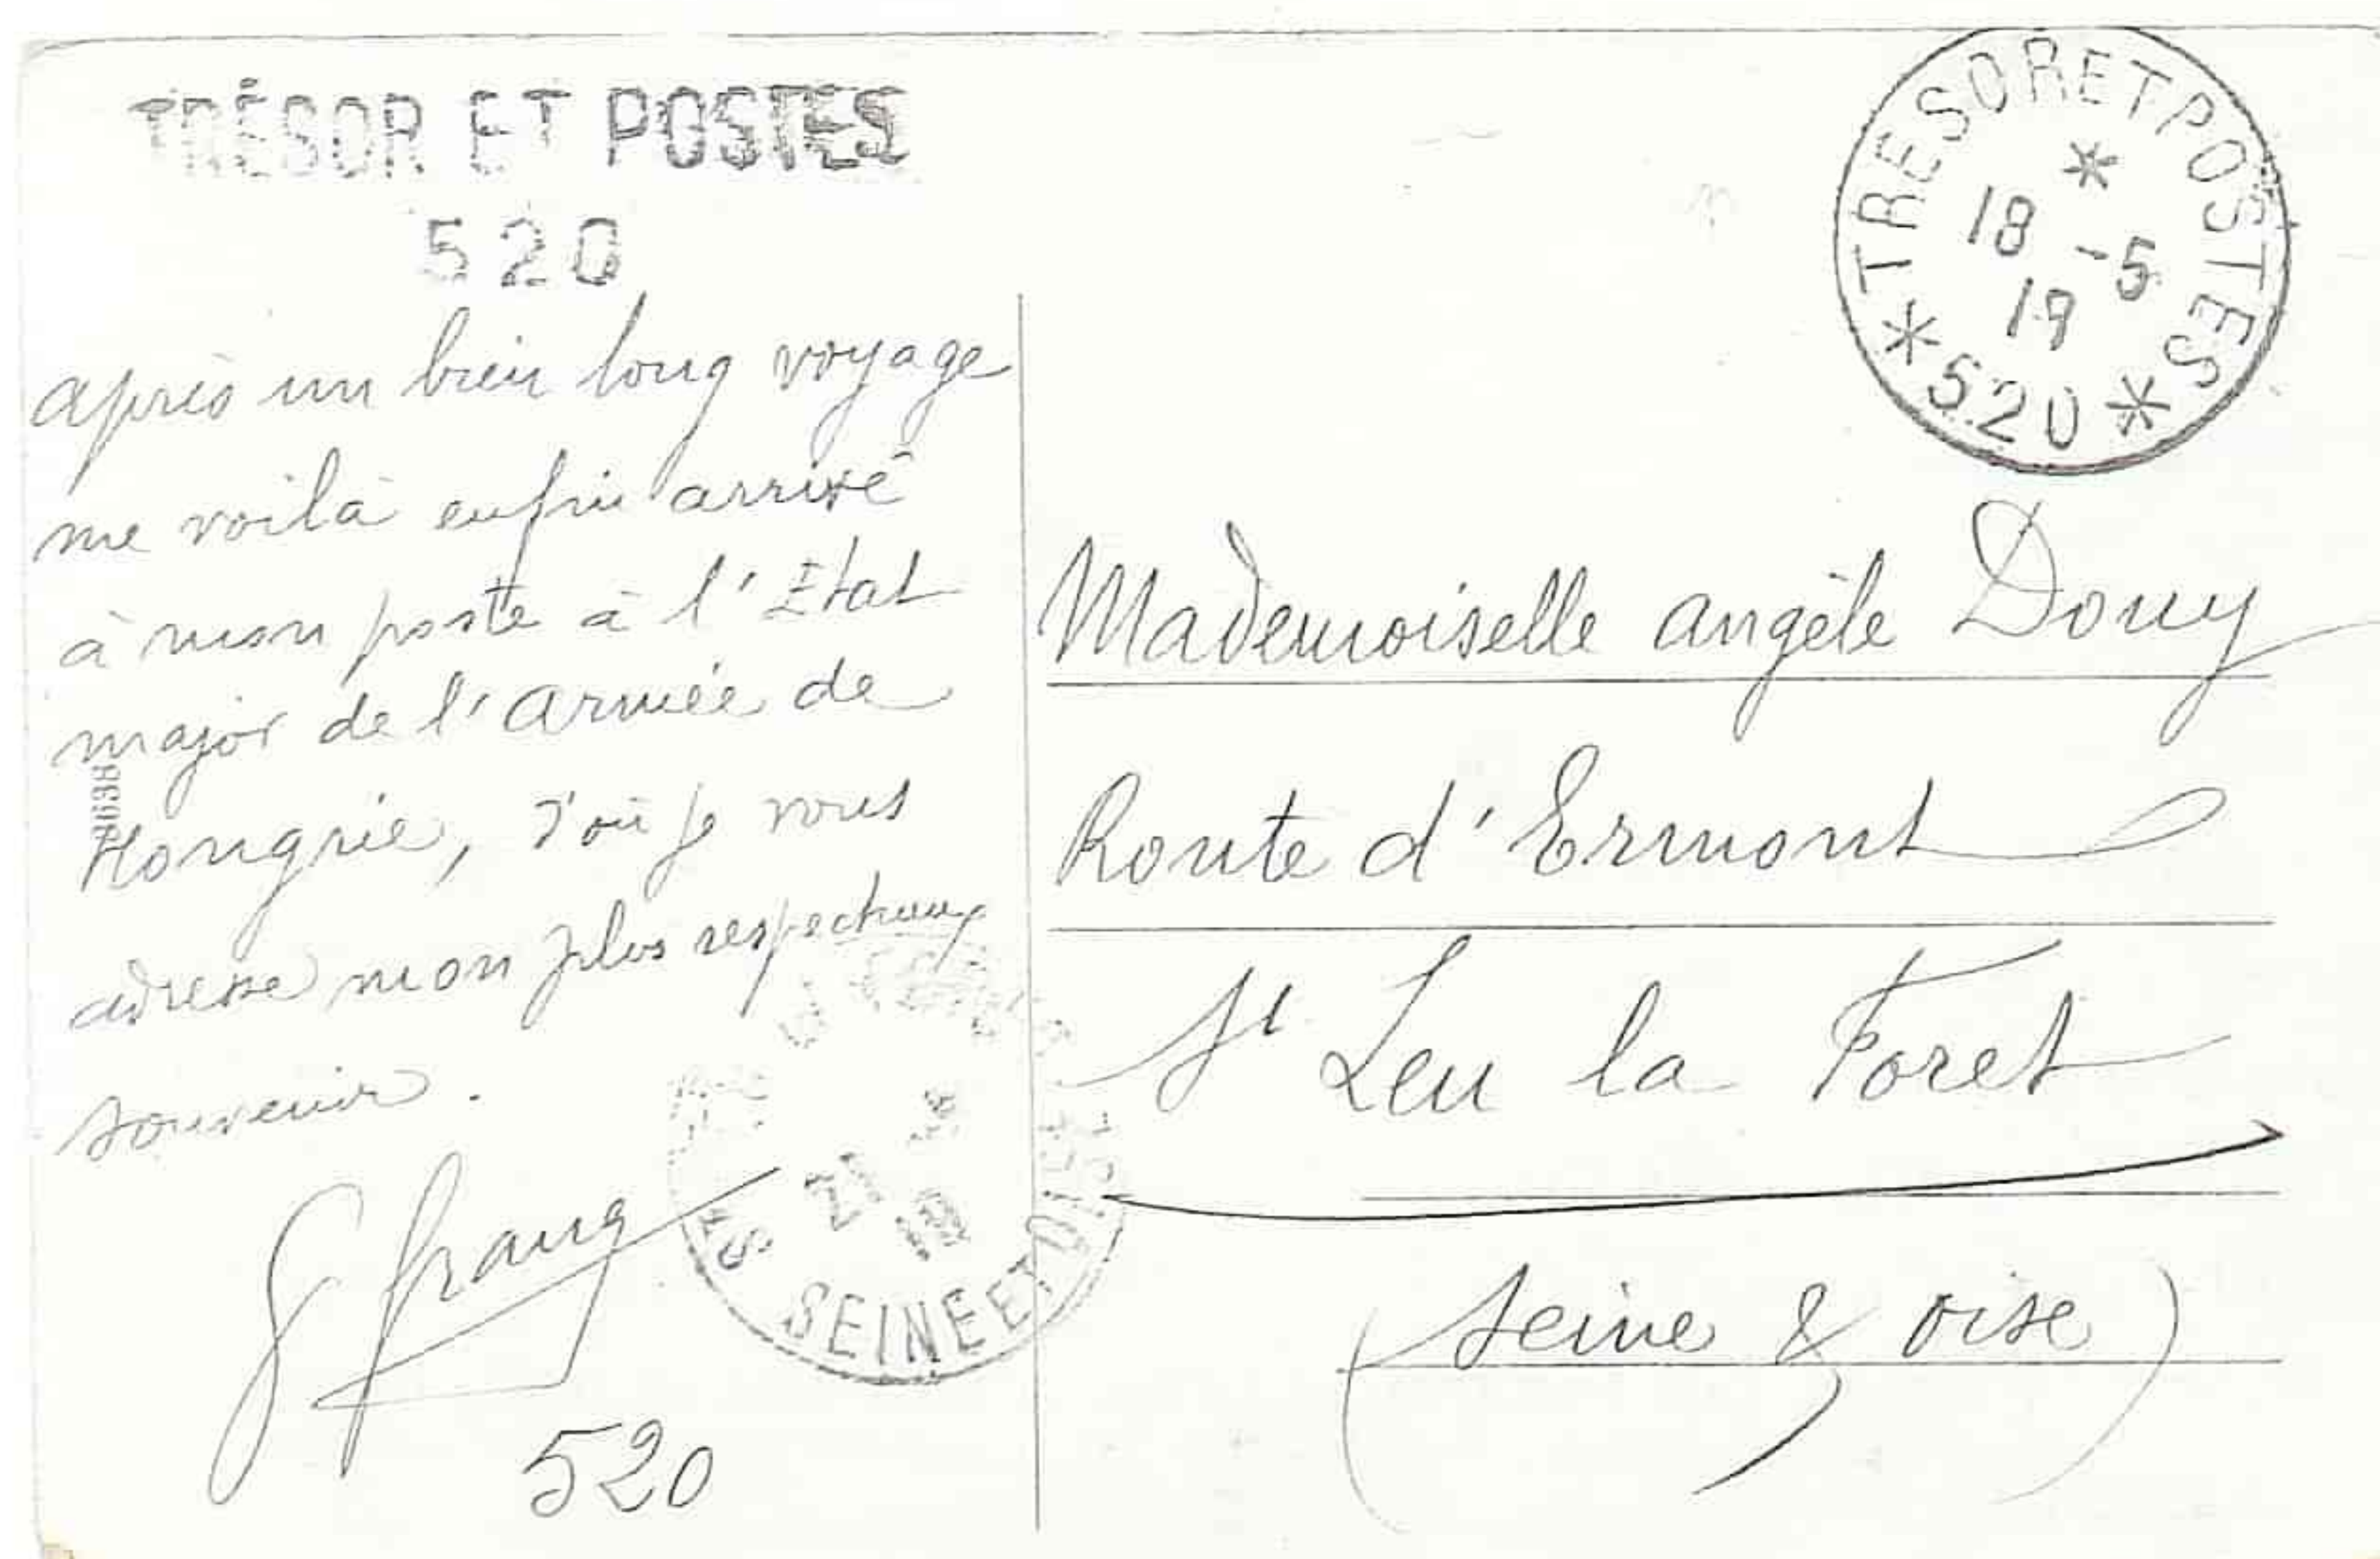 TRÉSOR ET POSTES
520
TRESOR ET POSTES
18 -5
19
520
après un bien long voyage
me voilà enfin arrivé
à mon poste à l'Etat
major de l'armée de
Hongrie, d'où je vous
adresse mon plus respectueux
souvenir.
520
36381
Mademoiselle angèle Douy
Route d'Ermont
St Leu la Foret
(Seine & oise)
SEINE ET OISE